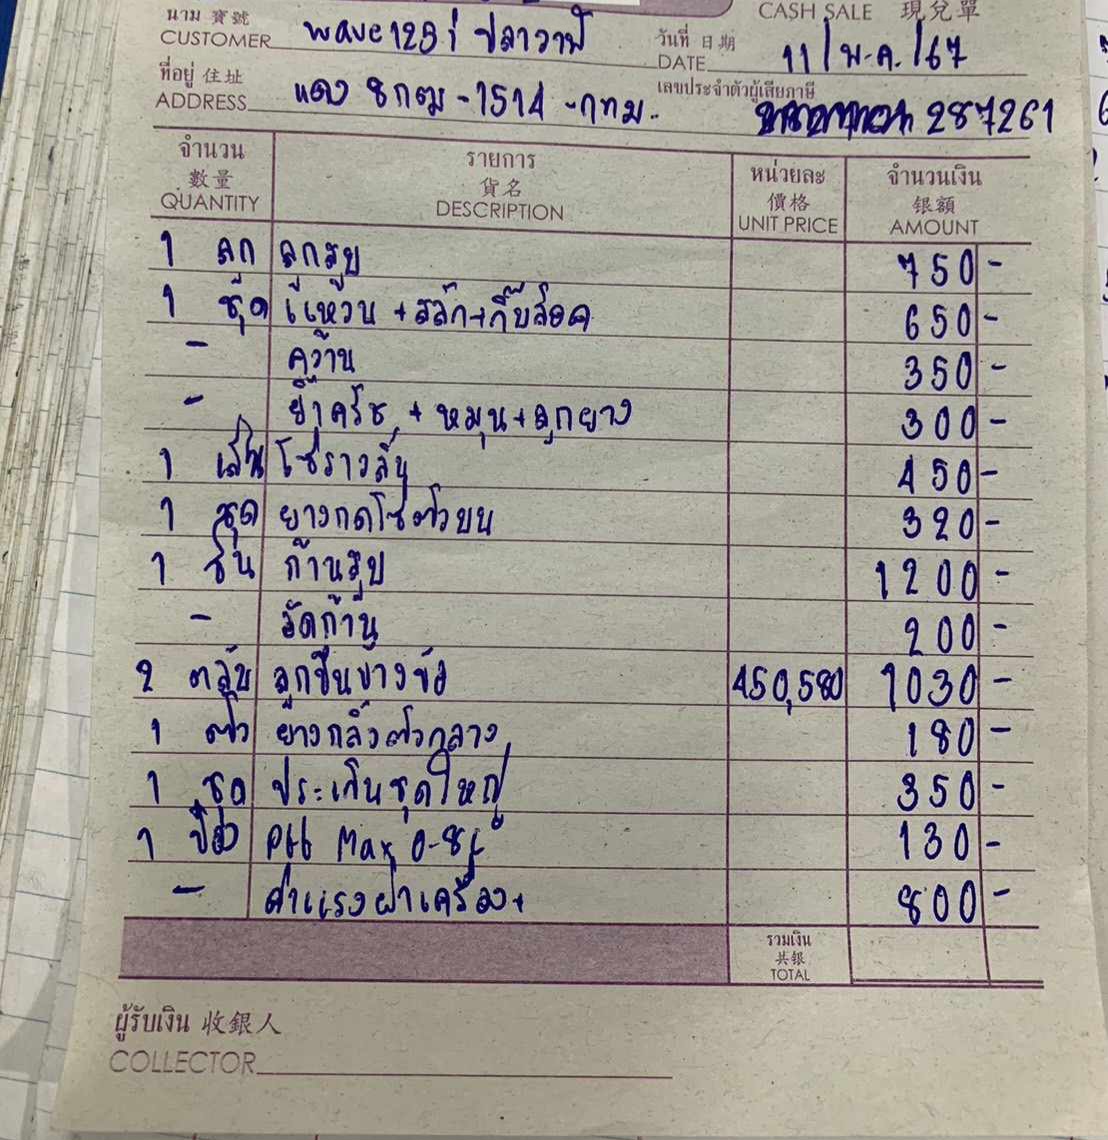 นาม 寶號 CASH SALE 現兌單
CUSTOMER wave125i ปลาวาฬ วันที่ 日期 DATE 11/พ.ค./67
ที่อยู่ 住址 เลขประจำตัวผู้เสียภาษี
ADDRESS แดง 8กตม-1514-กทม. 287261
จำนวน 數量 QUANTITY รายการ 貨名 DESCRIPTION หน่วยละ 價格 UNIT PRICE จำนวนเงิน 银額 AMOUNT
1 ลูก ลูกสูบ 750-
1 ชุด แหวน+สลัก+กิ๊บล็อค 650-
- คว้าน 350-
- ย้ำครัช+หมุน+ลูกยาง 300-
1 เส้น โซ่ราวลิ้น 450-
1 ชุด ยางกดโซ่ตัวบน 320-
1 ชิ้น ก้านสูบ 1200-
- อัดก้าน 200-
2 ตลับ ลูกปืนข้างข้อ 450,580 1030-
1 ตัว ยางกลิ้งตัวกลาง 180-
1 ชุด ประเก็นชุดใหญ่ 350-
1 ป๋อง Ptt Max 0-8L 130-
- ค่าแรงผ่าเครื่อง+ 800-
รวมเงิน 共银 TOTAL
ผู้รับเงิน 收銀人
COLLECTOR